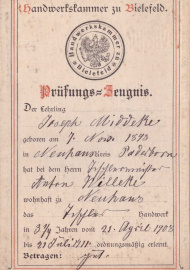 Handwerkskammer zu Bielefeld.
Handwerkskammer zu Bielefeld
Prüfungs=Zeugnis.
Der Lehrling
Joseph Middeke
geboren am 7. Nov. 1893
in Neuhaus Kreis Paderborn
hat bei dem Herrn Tischlermeister
Anton Willeke
wohnhaft zu Neuhaus
das Tischler Handwerk
in 3¼ Jahren vom 21. April 1908
bis 21 Juli 1911 ordnungsmäßig erlernt.
Betragen: gut.